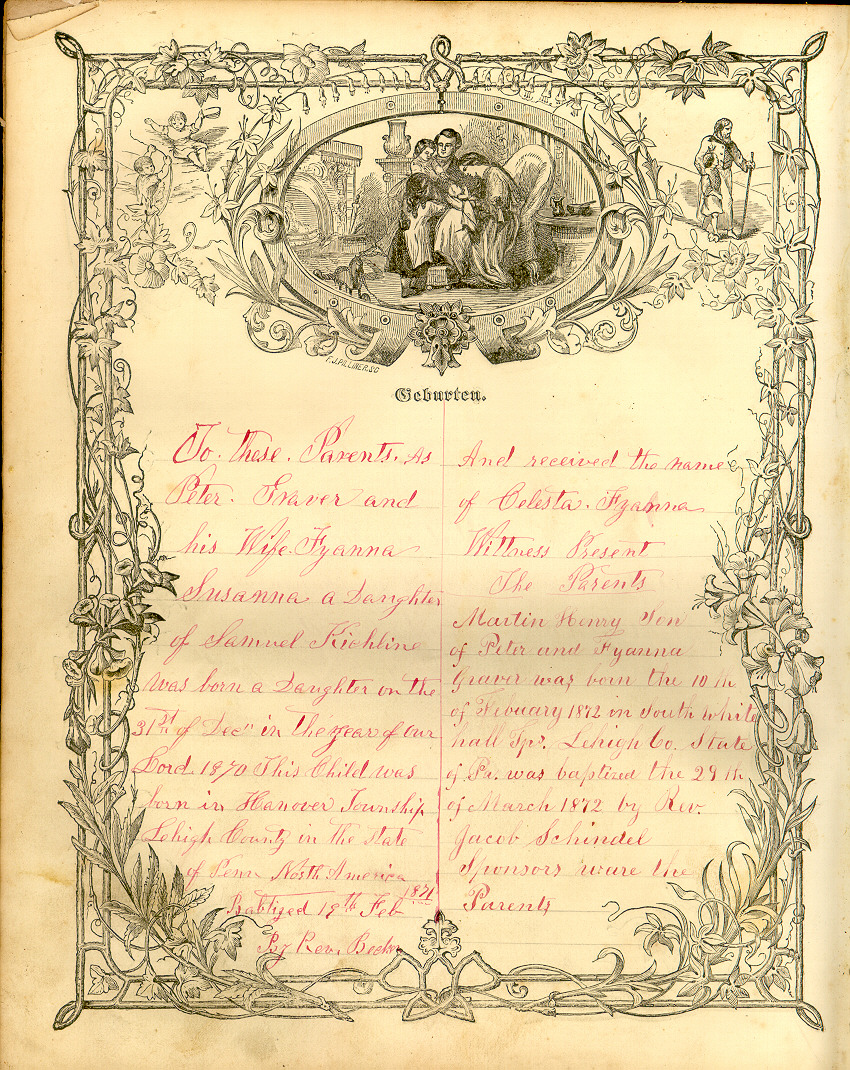 F. J. PILLINER. SC
Geburten.
To. these. Parents. As
Peter. Graver and
his Wife. Fyanna
Susanna a Daughter
of Samuel Kichline
was born a Daughter on the
31st of Dec" in the year of our
Lord 1870 This Child was
born in Hanover Township
Lehigh County in the State
of Penn North America
Babtized 19th Feb 1871
By Rev. Becker
And received the name
of Celesta. Fyanna
Wittness Present
The Parents
Martin Henry Son
of Peter and Fyanna
Graver was born the 10 th
of Febuary 1872 in South White
hall Tps. Lehigh Co. State
of Pa. was baptized the 29 th
of March 1872 by Rev.
Jacob Schindel
Sponsors ware the
Parents